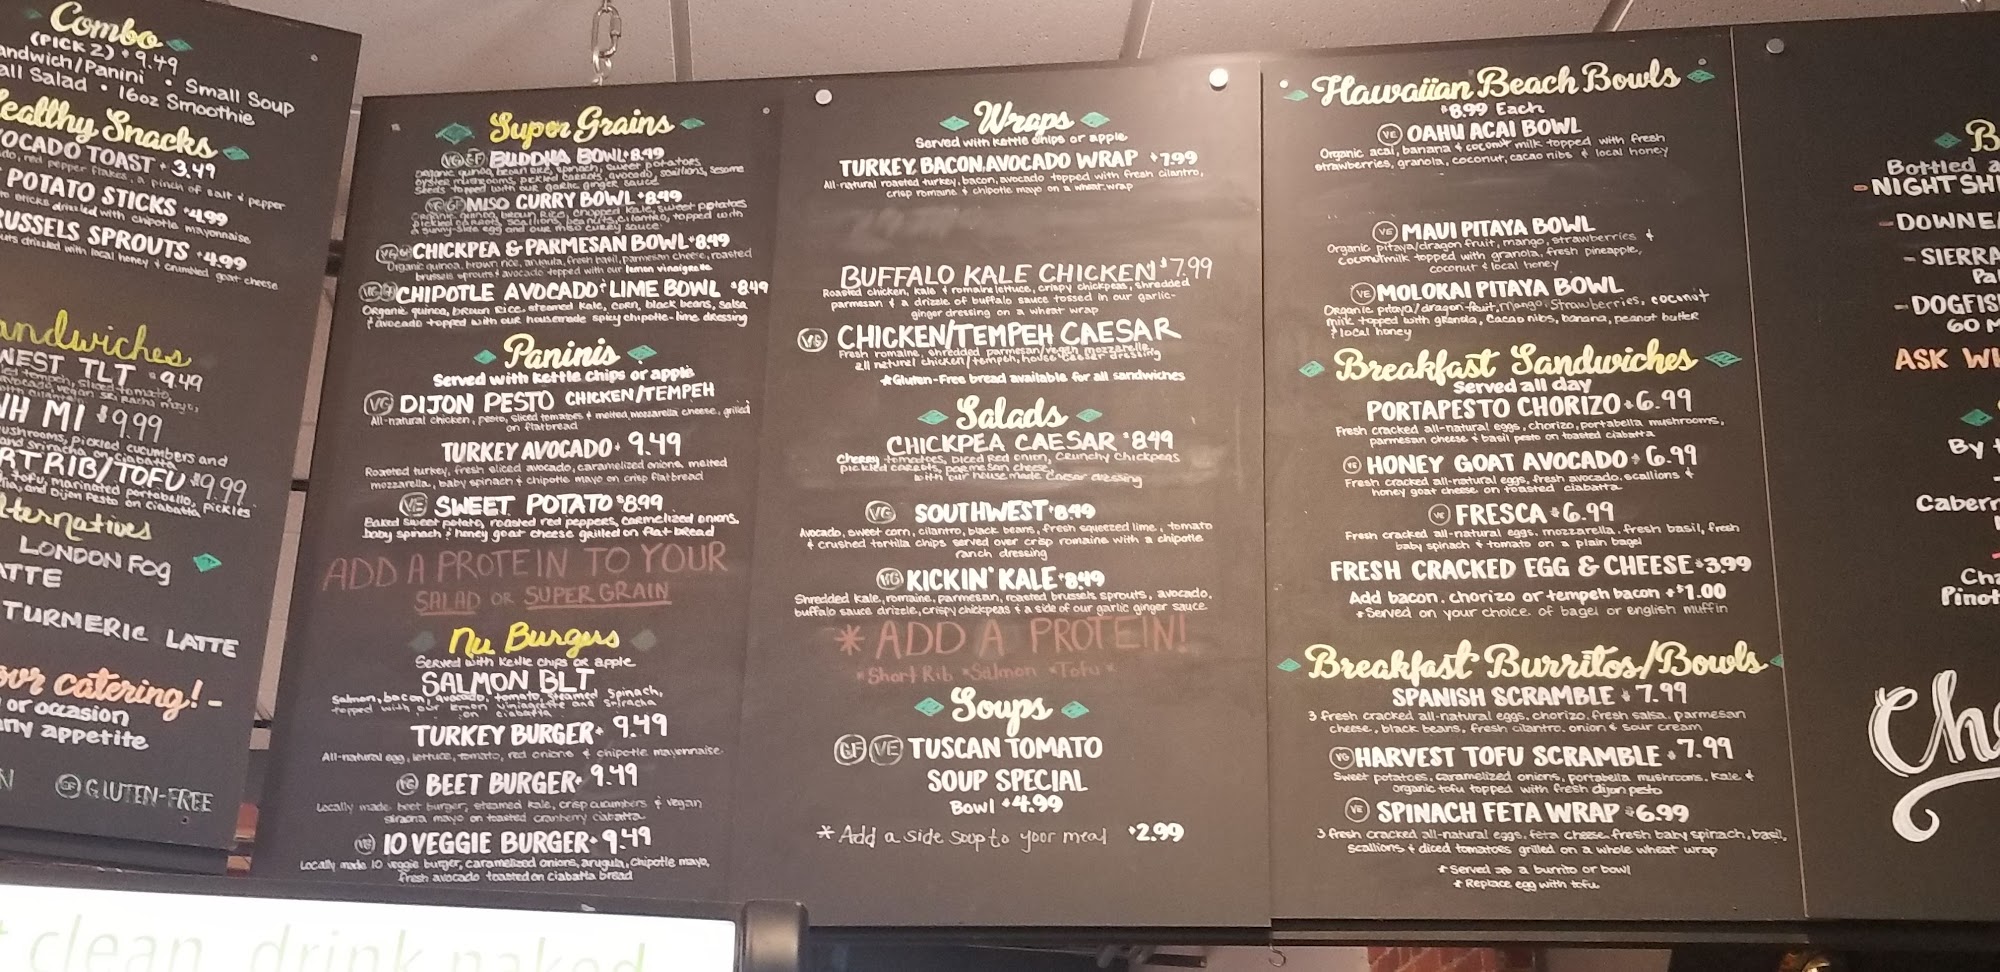 Combo
(PICK 2) • 9.49
andwich/Panini • Small Soup
all Salad • 16oz Smoothie
ealthy Snacks
OCADO TOAST • 3.49
do, red pepper flakes, a pinch of salt & pepper
POTATO STICKS $4.99
to sticks drizzled with chipotle mayonnaise
RUSSELS SPROUTS $4.99
uts drizzled with local honey & crumbled goat cheese
andwiches
WEST TLT $9.49
led tempeh, sliced tomato,
avocado, vegan sriracha mayo,
NH MI $9.99
ushrooms, pickled cucumbers and
and sriracha on ciabatta
RT RIB/TOFU $9.99
Tofu, marinated portobello, pickles
la, and Dijon Pesto on Ciabatta
lternatives
LONDON FOG
ATTE
TURMERIC LATTE
our catering! -
or occasion
any appetite
N GF GLUTEN-FREE
Super Grains
VG GF BUDDHA BOWL $8.49
Organic quinoa, brown rice, spinach, sweet potatoes
oyster mushrooms, pickled carrots, avocado, scallions, sesome
seeds topped with our garlic ginger sauce
VG GF MISO CURRY BOWL $8.49
Organic quinoa, brown rice, chopped kale, sweet potatoes
pickled carrots, scallions, peanuts, cilantro, topped with
a sunny-side egg and our miso curry sauce
CHICKPEA & PARMESAN BOWL $8.49
Organic quinoa, brown rice, arugula, fresh basil, parmesan cheese, roasted
brussels sprouts & avocado topped with our lemon vinaigrette
CHIPOTLE AVOCADO & LIME BOWL $8.49
Organic quinoa, brown rice, steamed kale, corn, black beans, salsa
& avocado topped with our housemade spicy chipotle-lime dressing
Paninis
Served with kettle chips or apple
VG DIJON PESTO CHICKEN/TEMPEH
All-natural chicken, pesto, sliced tomatoes & melted mozzarella cheese, grilled
on flatbread
TURKEY AVOCADO • 9.49
Roasted turkey, fresh sliced avocado, caramelized onions, melted
mozzarella, baby spinach & chipotle mayo on crisp flatbread
VE SWEET POTATO $8.99
Baked sweet potato, roasted red peppers, carmelized onions,
baby spinach & honey goat cheese grilled on flat bread
ADD A PROTEIN TO YOUR
SALAD OR SUPER GRAIN
Nu Burgers
Served with Kettle chips or apple
SALMON BLT
Salmon, bacon, avocado, tomato, steamed spinach,
topped with our lemon viniagrette and Sriracha
on ciabatta
TURKEY BURGER • 9.49
All-natural egg, lettuce, tomato, red onions & chipotle mayonnaise
VG BEET BURGER • 9.49
Locally made beet burger, steamed kale, crisp cucumbers & vegan
sriracha mayo on toasted cranberry ciabatta
VG 10 VEGGIE BURGER • 9.49
Locally made 10 veggie burger, caramelized onions, arugula, chipotle mayo,
fresh avocado toasted on ciabatta bread
Wraps
Served with kettle chips or apple
TURKEY, BACON, AVOCADO WRAP $7.99
All-natural roasted turkey, bacon, avocado topped with fresh cilantro,
crisp romaine & chipotle mayo on a wheat wrap
BUFFALO KALE CHICKEN $7.99
Roasted chicken, kale & romaine lettuce, crispy chickpeas, shredded
parmesan & a drizzle of buffalo sauce tossed in our garlic-
ginger dressing on a wheat wrap
VG CHICKEN/TEMPEH CAESAR
Fresh romaine, shredded parmesan/vegan mozzarella,
all naturel chicken/tempeh, house Ceaser dressing
*Gluten-Free bread available for all sandwiches
Salads
CHICKPEA CAESAR $8.49
Cherry tomatoes, Diced Red onion, Crunchy Chickpeas
pickled carrots, parmesan cheese,
with our house made Caesar dressing
VG SOUTHWEST $8.49
Avocado, sweet corn, cilantro, black beans, fresh squeezed lime, tomato
& crushed tortilla chips served over crisp romaine with a chipotle
ranch dressing
VG KICKIN' KALE $8.49
Shredded kale, romaine, parmesan, roasted brussels sprouts, avocado,
buffalo sauce drizzle, crispy chickpeas & a side of our garlic ginger sauce
* ADD A PROTEIN!
*Short Rib *Salmon *Tofu *
Soups
GF VE TUSCAN TOMATO
SOUP SPECIAL
Bowl $4.99
* Add a side soup to your meal $2.99
Hawaiian Beach Bowls
$8.99 Each
VE OAHU ACAI BOWL
Organic acai, banana & coconut milk topped with fresh
strawberries, granola, coconut, cacao nibs & local honey
VE MAUI PITAYA BOWL
Organic pitaya/dragon fruit, mango, strawberries &
coconutmilk topped with granola, fresh pineapple,
coconut & local honey
VE MOLOKAI PITAYA BOWL
Organic pitaya/dragon-fruit, mango, strawberries, coconut
milk topped with granola, Cacao nibs, banana, peanut butter
& local honey
Breakfast Sandwiches
Served all day
PORTAPESTO CHORIZO • 6.99
Fresh cracked all-natural eggs, chorizo, portabella mushrooms,
parmesan cheese & basil pesto on toasted ciabatta
VE HONEY GOAT AVOCADO • 6.99
Fresh cracked all-natural eggs, fresh avocado, scallions &
honey goat cheese on toasted ciabatta
VE FRESCA $6.99
Fresh cracked all-natural eggs, mozzarella, fresh basil, fresh
baby spinach & tomato on a plain bagel
FRESH CRACKED EGG & CHEESE $3.99
Add bacon, chorizo or tempeh bacon +$1.00
*Served on your choice of bagel or english muffin
Breakfast Burritos/Bowls
SPANISH SCRAMBLE • 7.99
3 fresh cracked all-natural eggs, chorizo, fresh salsa, parmesan
cheese, black beans, fresh cilantro, onion & sour cream
VG HARVEST TOFU SCRAMBLE • 7.99
Sweet potatoes, caramelized onions, portabella mushrooms, kale &
organic tofu topped with fresh dijon pesto
VE SPINACH FETA WRAP $6.99
3 fresh cracked all-natural eggs, feta cheese, fresh baby spinach, basil,
scallions & diced tomatoes grilled on a whole wheat wrap
* Served as a burrito or bowl
* Replace egg with tofu
B
Bottled a
- NIGHTSHI
- DOWNEA
- SIERRA
Pal
- DOGFIS
60 M
ASK WI
By t
Caberr
Cha
Pinot
Che
t clean, drink naked